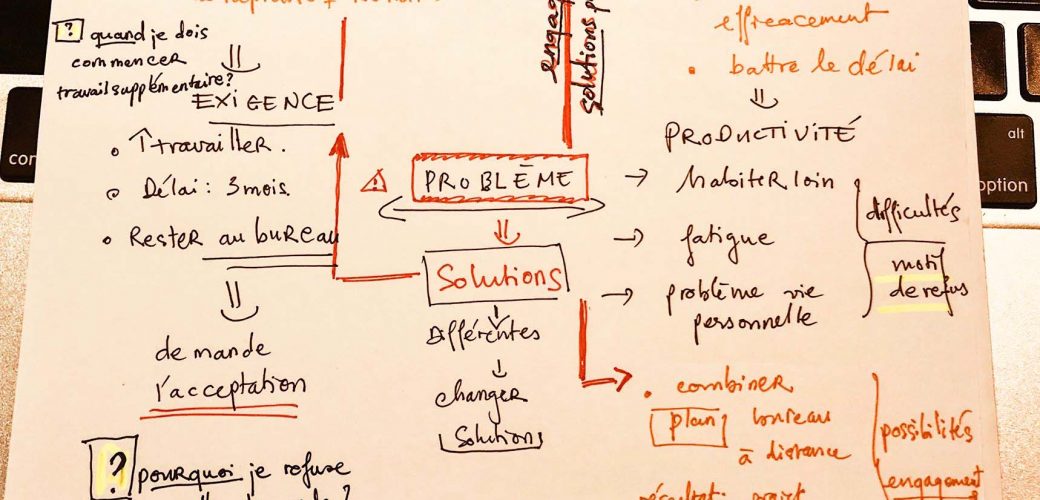 ? quand je dois
commencer
travail supplémentaire?
EXIGENCE
• ↑ travailler.
• Délai: 3 mois.
• Rester au bureau
demande
l'acceptation
? pourquoi je refuse
engag
solutions p
PROBLÈME
Solutions
Différentes
changer
Solutions
• battre le délai
PRODUCTIVITÉ
→ habiter loin
→ fatigue
→ problème vie
personnelle
difficultés
motif
de refus
• combiner
plan bureau
à distance
résultat: projet
possibilités
engagement
alt
option